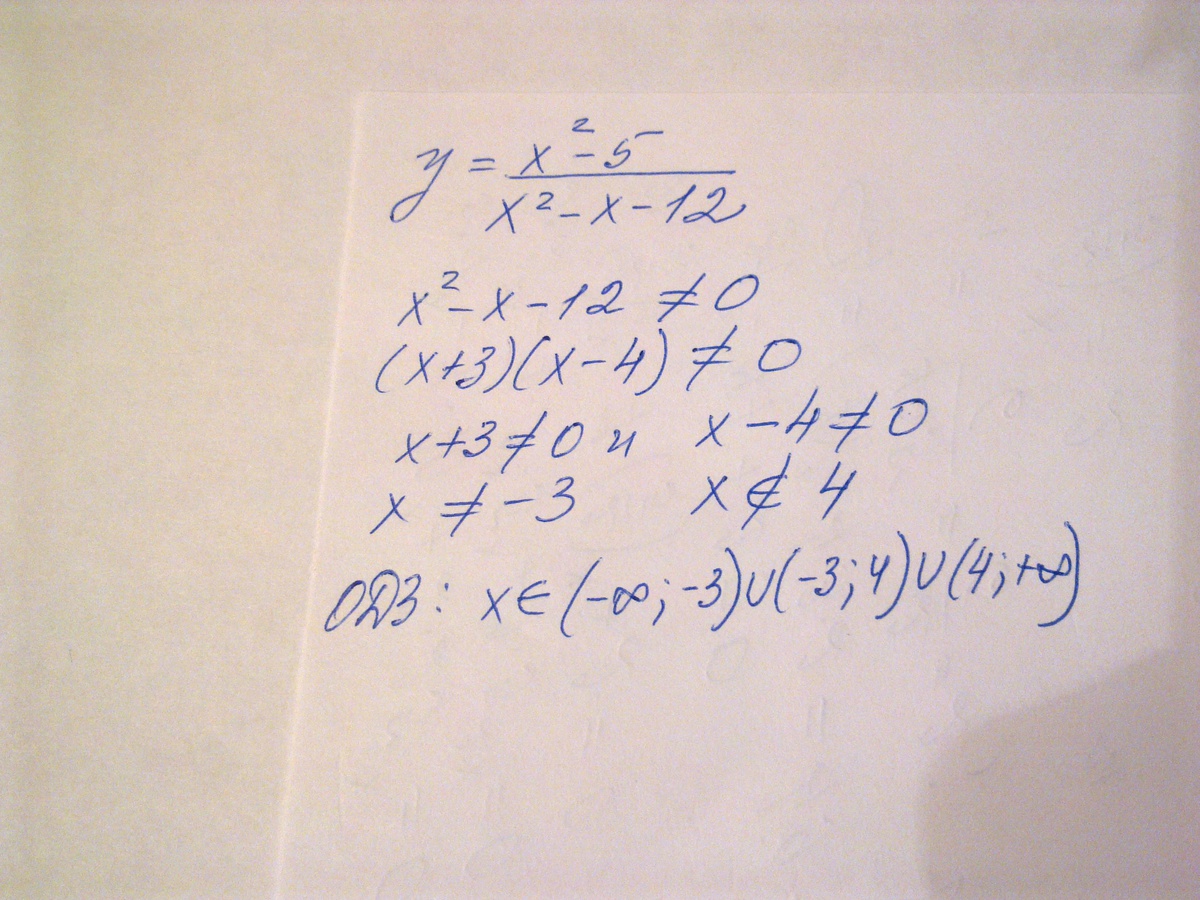 y = x²-5
x²-x-12
x²-x-12 ≠ 0
(x+3)(x-4) ≠ 0
x+3 ≠ 0 и x-4 ≠ 0
x ≠ -3 x ∉ 4
ОДЗ: x ∈ (-∞; -3)∪(-3; 4)∪(4; +∞)